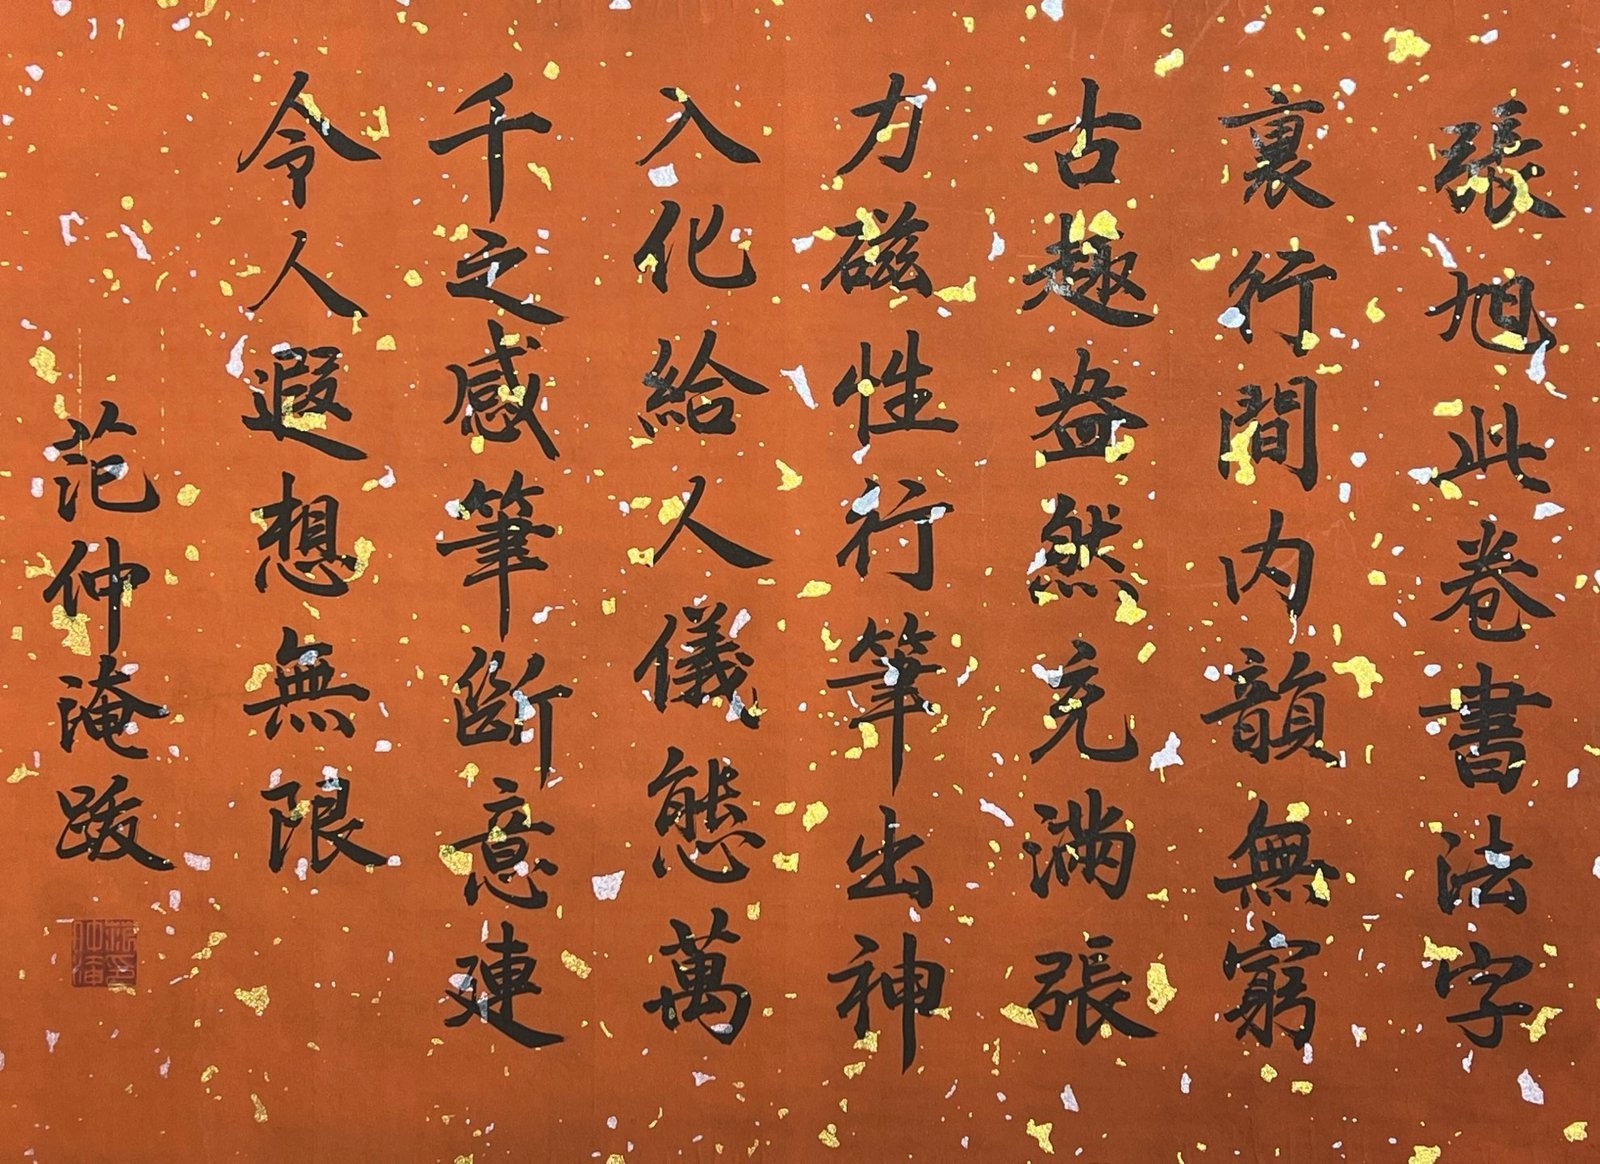 張旭此卷書法字
裏行間内韻無窮
古趣盎然充满張
力磁性行筆出神
入化給人儀態萬
千之感筆斷意連
令人遐想無限
范仲淹跋